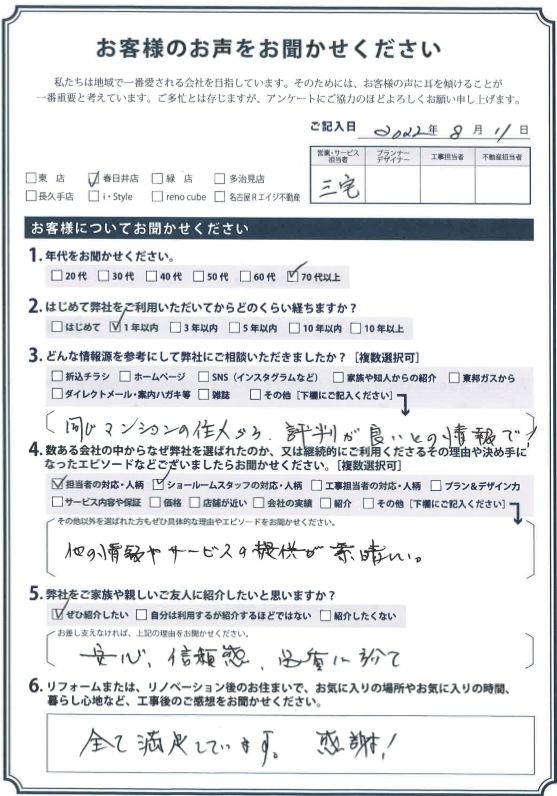 お客様のお声をお聞かせください
私たちは地域で一番愛される会社を目指しています。そのためには、お客様の声に耳を傾けることが
一番重要と考えています。ご多忙とは存じますが、アンケートにご協力のほどよろしくお願い申し上げます。
ご記入日 2022年 8月 11日
営業・サービス担当者 プランナーデザイナー 工事担当者 不動産担当者
三宅
□東 店 ☑春日井店 □緑 店 □多治見店
□長久手店 □i・Style □reno cube □名古屋Rエイジ不動産
お客様についてお聞かせください
1. 年代をお聞かせください。
□20代 □30代 □40代 □50代 □60代 ☑70代以上
2. はじめて弊社をご利用いただいてからどのくらい経ちますか?
□はじめて ☑1年以内 □3年以内 □5年以内 □10年以内 □10年以上
3. どんな情報源を参考にして弊社にご相談いただきましたか?[複数選択可]
□折込チラシ □ホームページ □SNS(インスタグラムなど) □家族や知人からの紹介 □東邦ガスから
□ダイレクトメール・案内ハガキ等 □雑誌 □その他[下欄にご記入ください]
同じマンションの住人から、評判が良いとの情報で!
4. 数ある会社の中からなぜ弊社を選ばれたのか、又は継続的にご利用くださるその理由や決め手に
なったエピソードなどございましたらお聞かせください。[複数選択可]
☑担当者の対応・人柄 ☑ショールームスタッフの対応・人柄 □工事担当者の対応・人柄 □プラン&デザイン力
□サービス内容や保証 □価格 □店舗が近い □会社の実績 □紹介 □その他[下欄にご記入ください]
その他以外を選ばれた方もぜひ具体的な理由やエピソードをお聞かせください。
他の情報やサービスの提供が素晴しい。
5. 弊社をご家族や親しいご友人に紹介したいと思いますか?
☑ぜひ紹介したい □自分は利用するが紹介するほどではない □紹介したくない
お差し支えなければ、上記の理由をお聞かせください。
安心、信頼感、品質に
6. リフォームまたは、リノベーション後のお住まいで、お気に入りの場所やお気に入りの時間、
暮らし心地など、工事後のご感想をお聞かせください。
全て満足しています。 感謝!